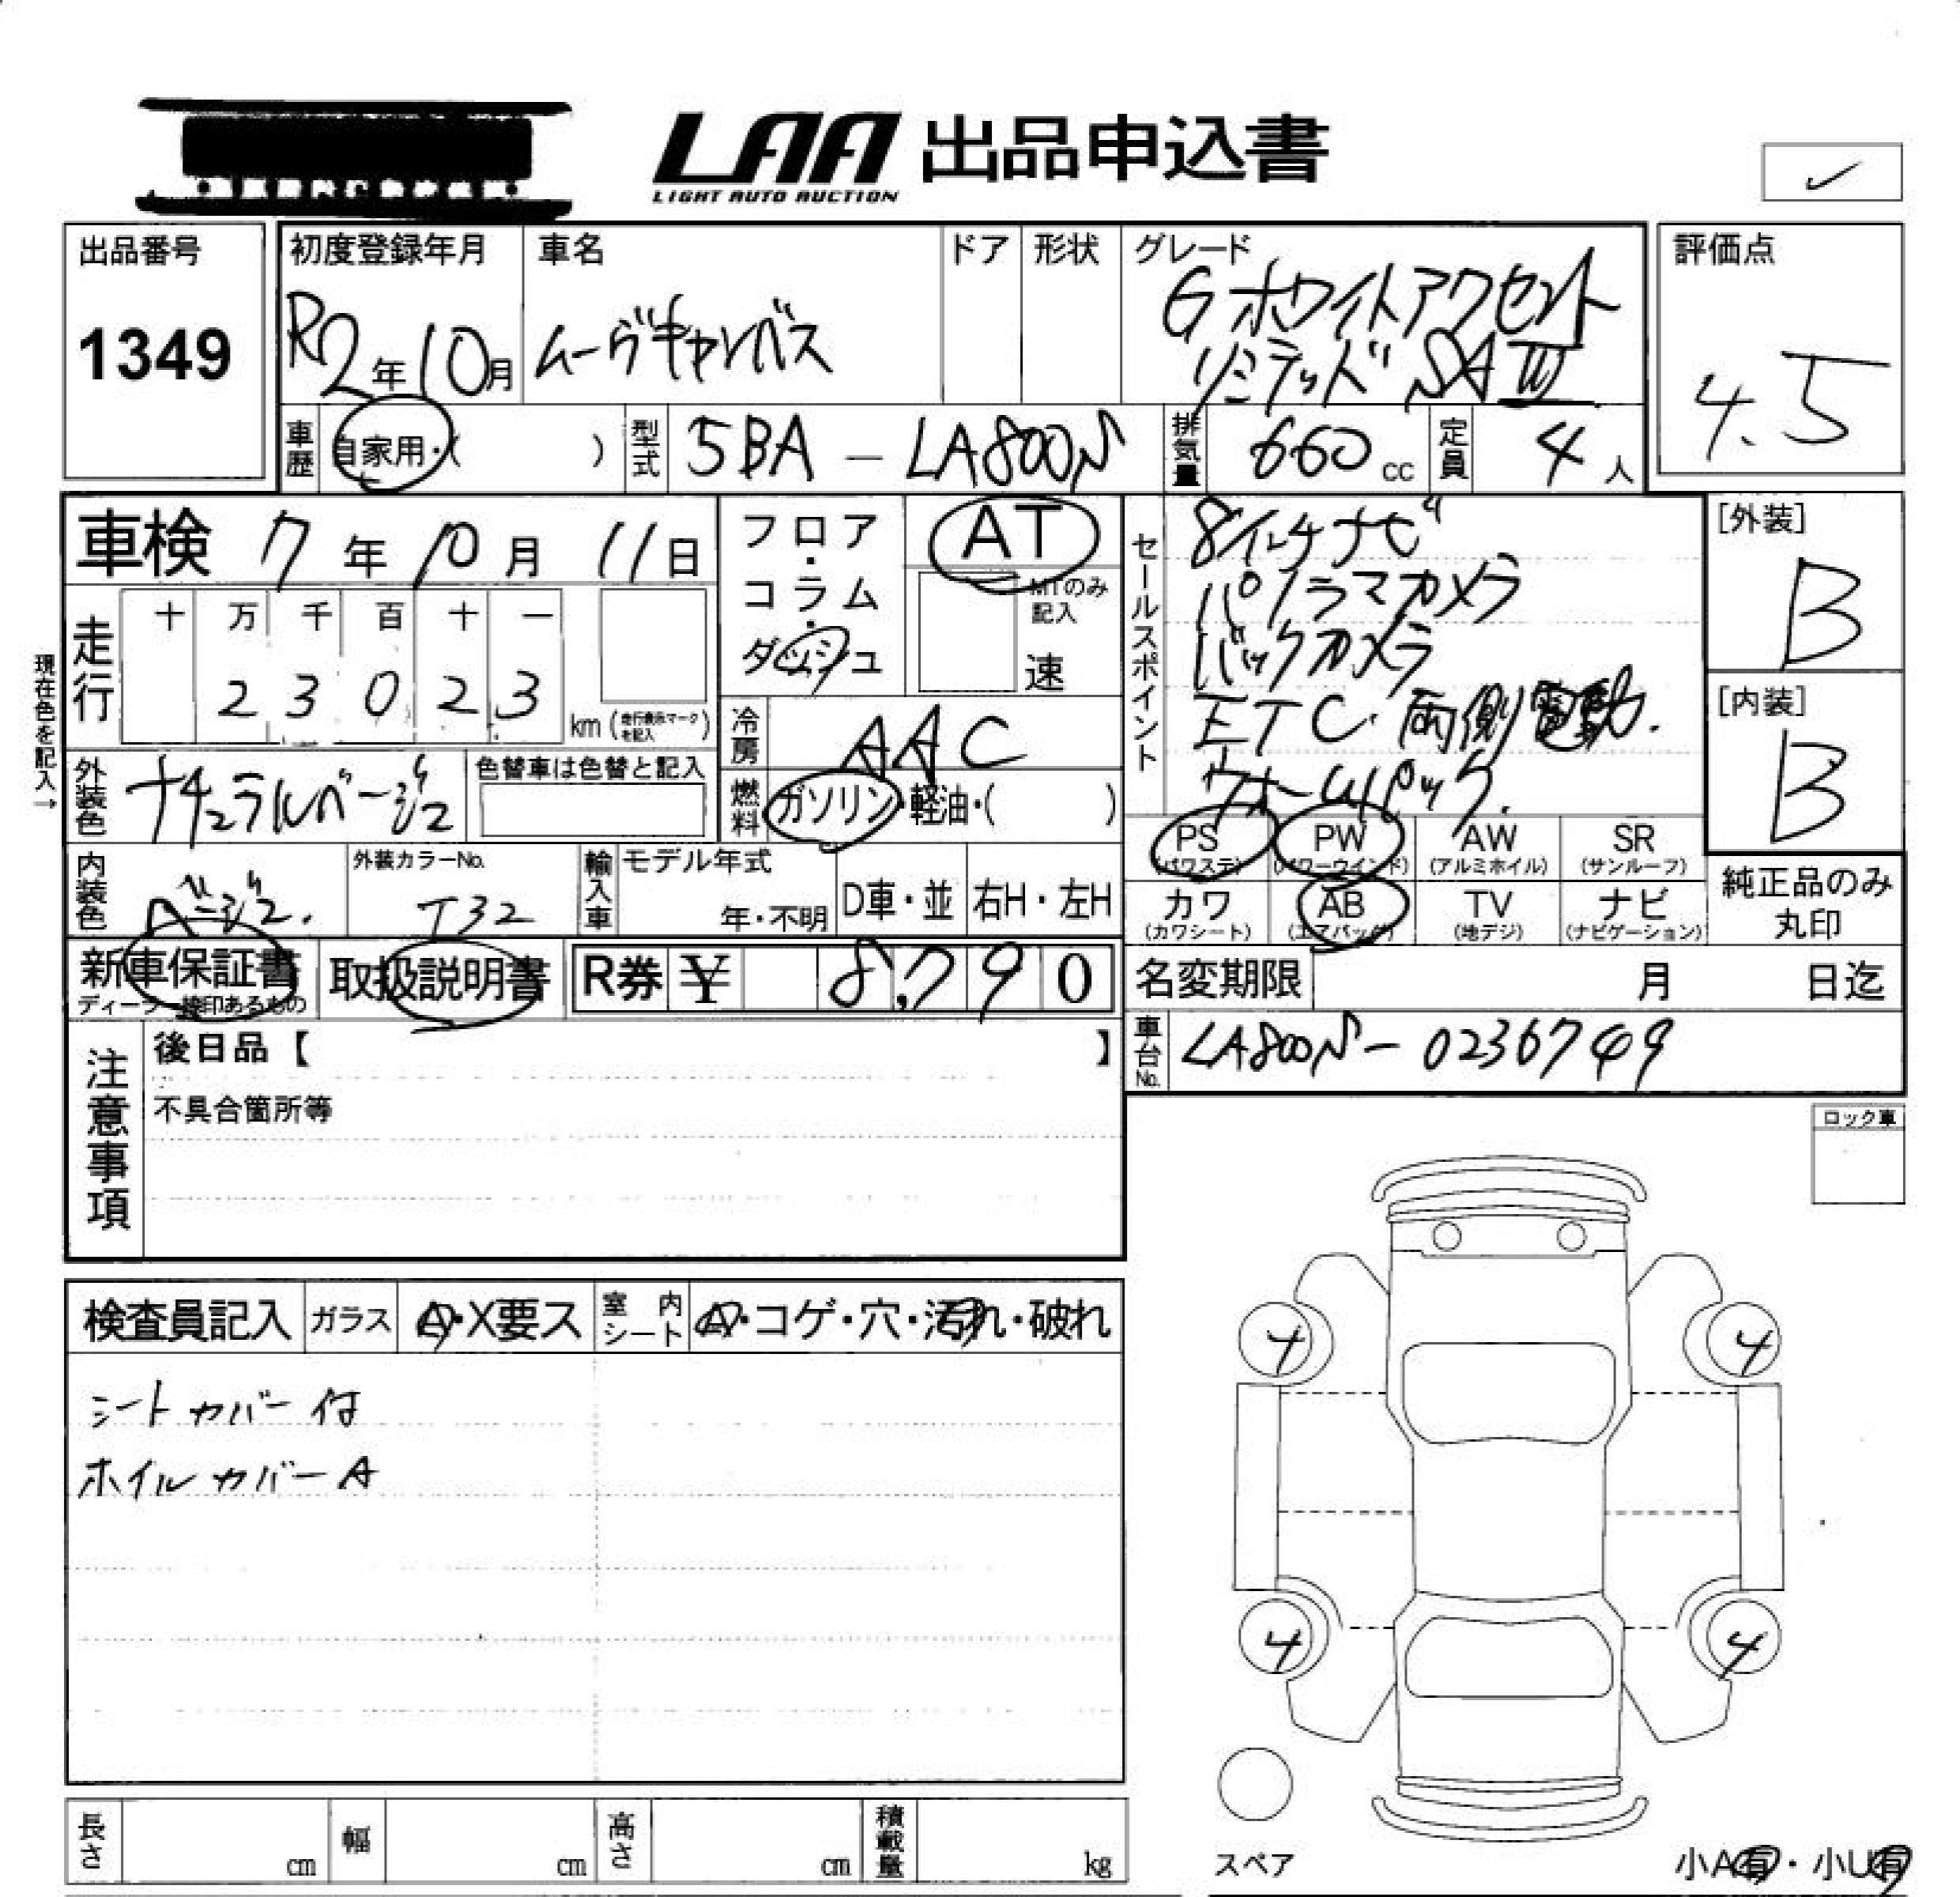 LAA 出品申込書
LIGHT AUTO AUCTION
✓
出品番号 初度登録年月 車名 ドア 形状 グレード 評価点
1349 R2年10月 ムーヴキャンバス Gホワイトアクセント
リミテッド SAⅢ 4.5
車歴 自家用・( ) 型式 5BA - LA800S 排気量 660 cc 定員 4 人
車検 7年10月11日
フロア・コラム・ダッシュ
AT
MTのみ記入
速
セールスポイント
8インチナビ
パノラマカメラ
バックカメラ
ETC 両側電動.
ウォームパック.
[外装]
B
[内装]
B
現在色を記入→
走行 十 万 千 百 十 一
2 3 0 2 3 km (走行表示マークを記入)
冷房 AAC
外装色 ナチュラルベージュ 色替車は色替と記入
燃料 ガソリン・軽油・( )
PS (パワステ) PW (パワーウインド) AW (アルミホイル) SR (サンルーフ)
カワ (カワシート) AB (エアバッグ) TV (地デジ) ナビ (ナビゲーション)
純正品のみ
丸印
内装色 ベージュ. 外装カラーNo. T32 輸入車 モデル年式 年・不明 D車・並 右H・左H
新車保証書 取扱説明書 R券 ¥ 8,790
名変期限 月 日迄
車台No. LA800S-0236749
注意事項
後日品【 】
不具合箇所等
ロック車
検査員記入 ガラス A・X要ス 室内シート A・コゲ・穴・汚れ・破れ
シートカバー付
ホイルカバーA
4 4
4 4
スペア
小A有・小U有
長さ cm 幅 cm 高さ cm 積載量 kg